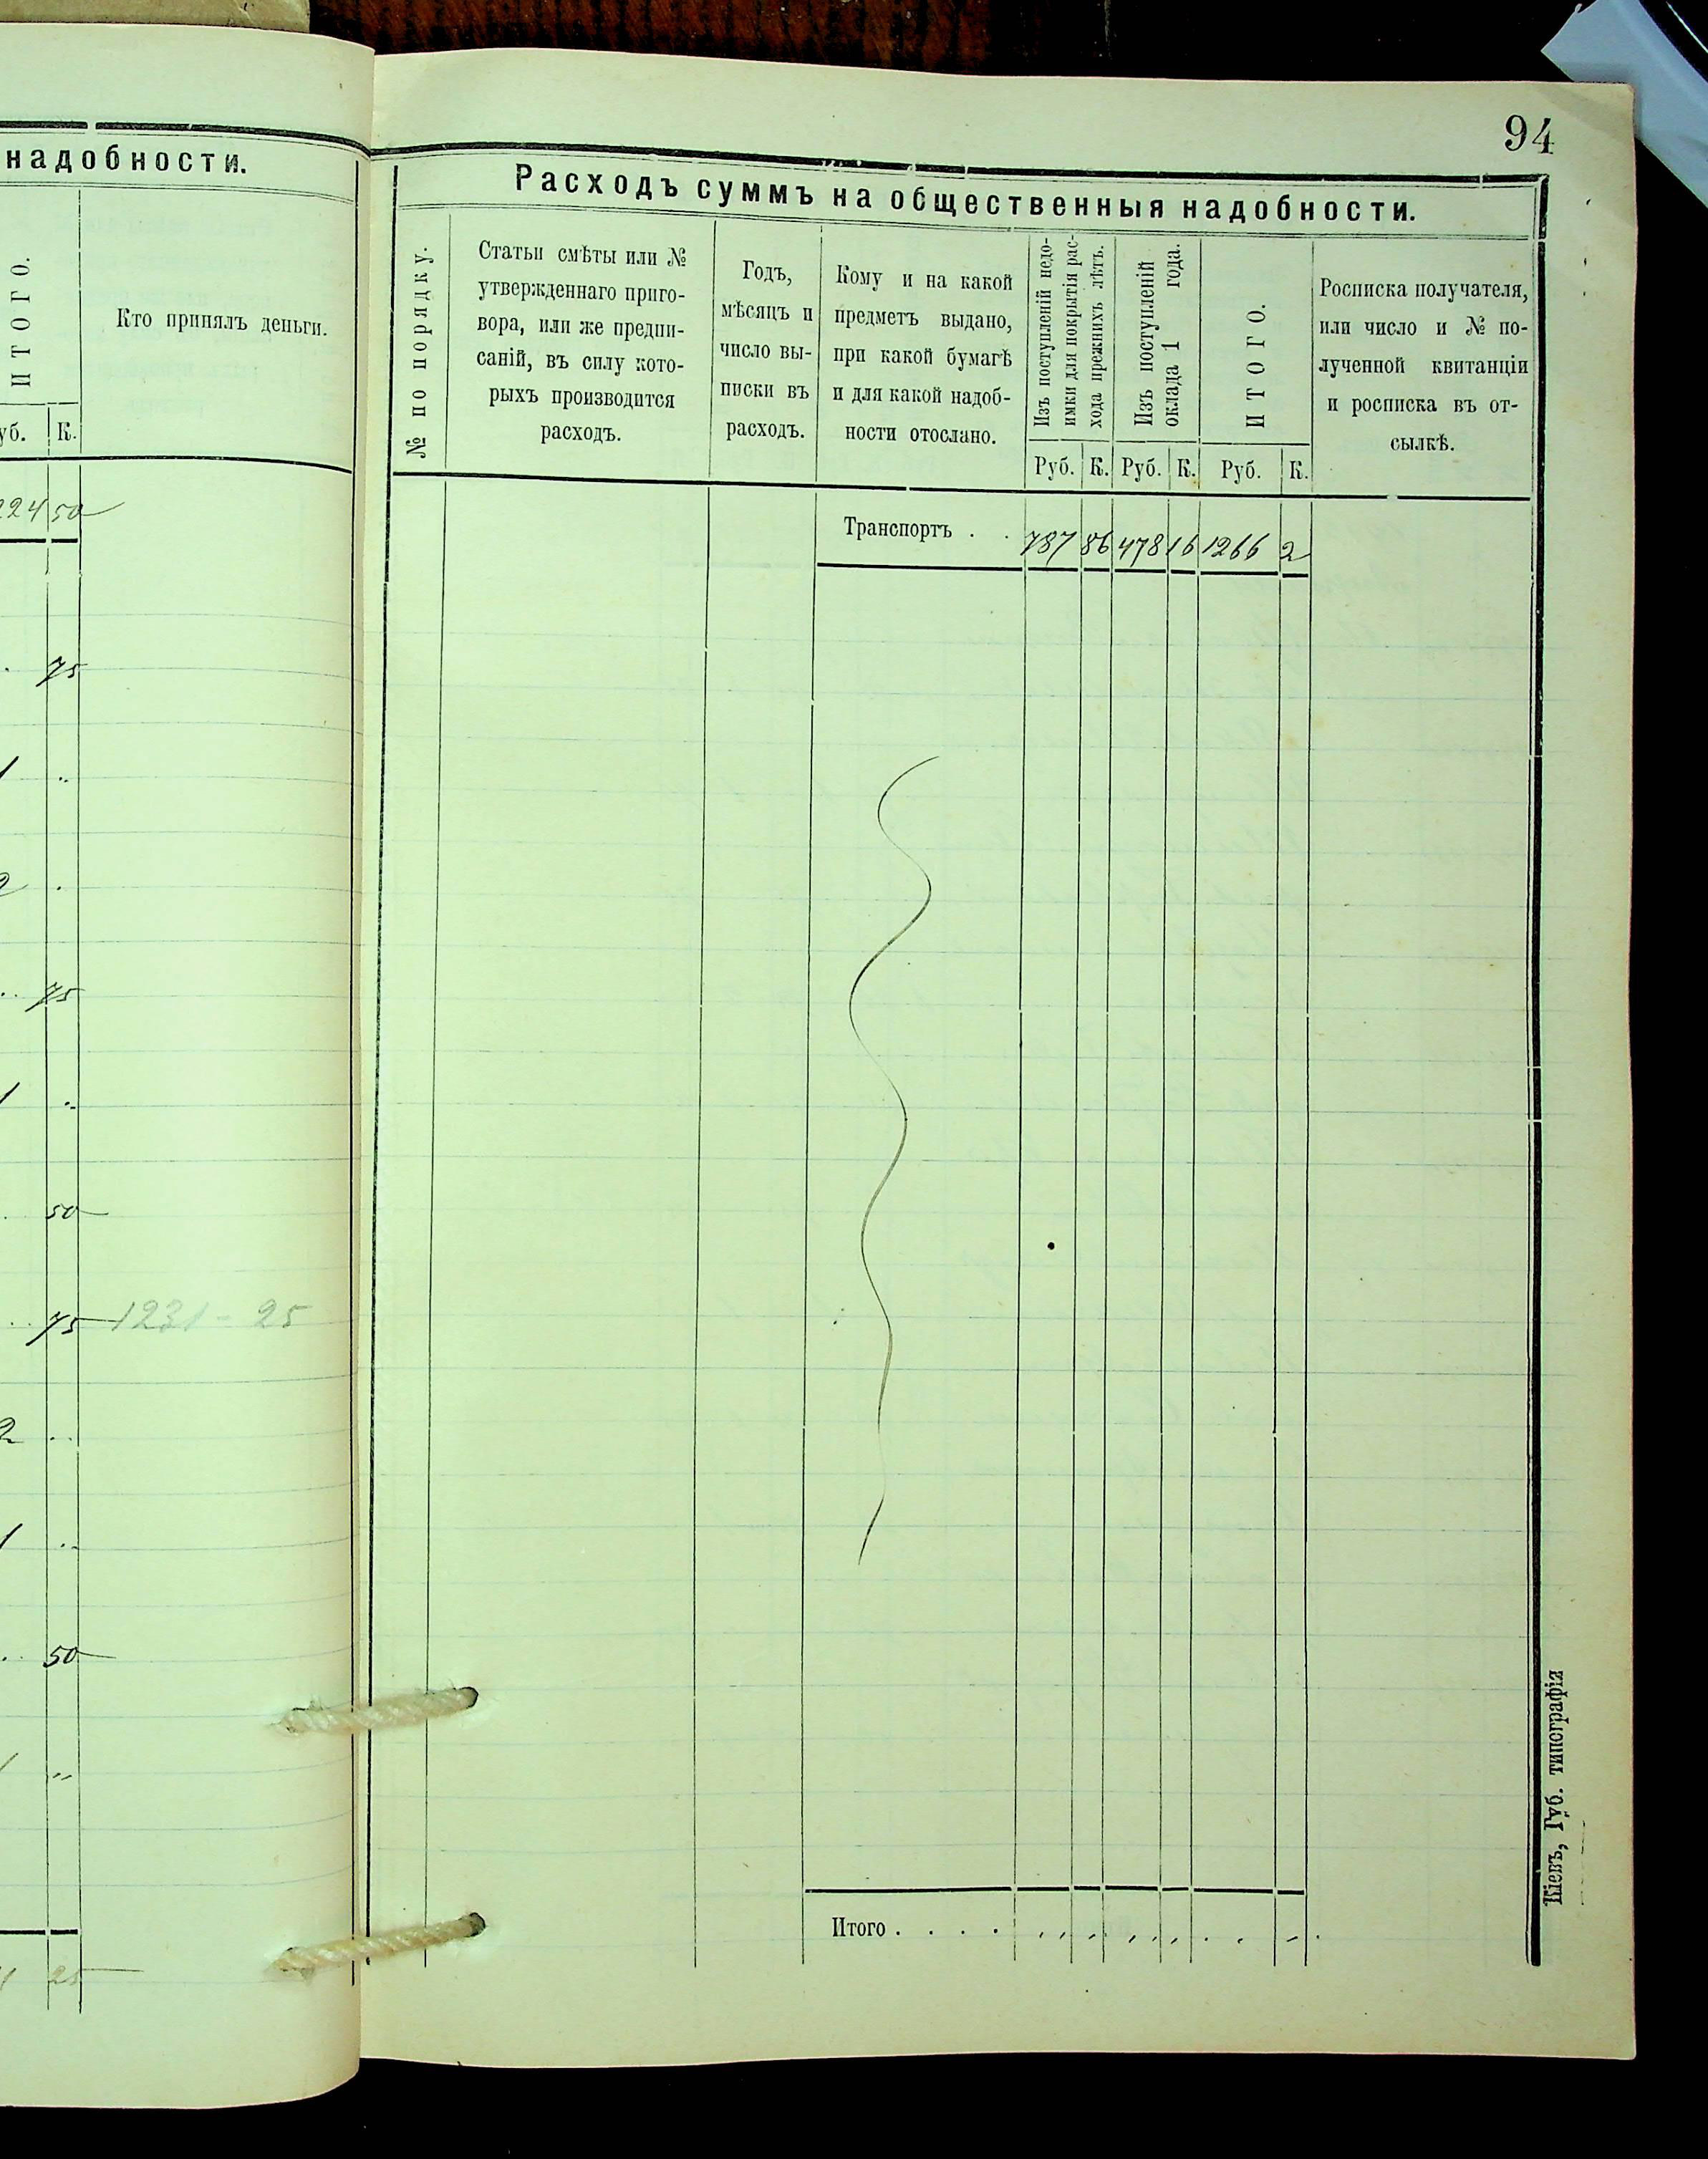 надобности.
ИТОГО.
Кто принялъ деньги.
уб. К.
224 50
75
1
2
75
1
50
75
1231 - 25
2
1
50
25
94
Расходъ суммъ на общественныя надобности.
№ по порядку.
Статьи смѣты или №
утвержденнаго приго-
вора, или же предпи-
саній, въ силу кото-
рыхъ производится
расходъ.
Годъ,
мѣсяцъ и
число вы-
писки въ
расходъ.
Кому и на какой
предметъ выдано,
при какой бумагѣ
и для какой надоб-
ности отослано.
Изъ поступленій недо-
имки для покрытія рас-
хода прежнихъ лѣтъ.
Изъ поступленій
оклада 1 года.
ИТОГО.
Росписка получателя,
или число и № по-
лученной квитанціи
и росписка въ от-
сылкѣ.
Руб. К. Руб. К. Руб. К.
Транспортъ . . 787 86 478 16 1266 2
Итого . . . .
Кіевъ, Губ. типографія